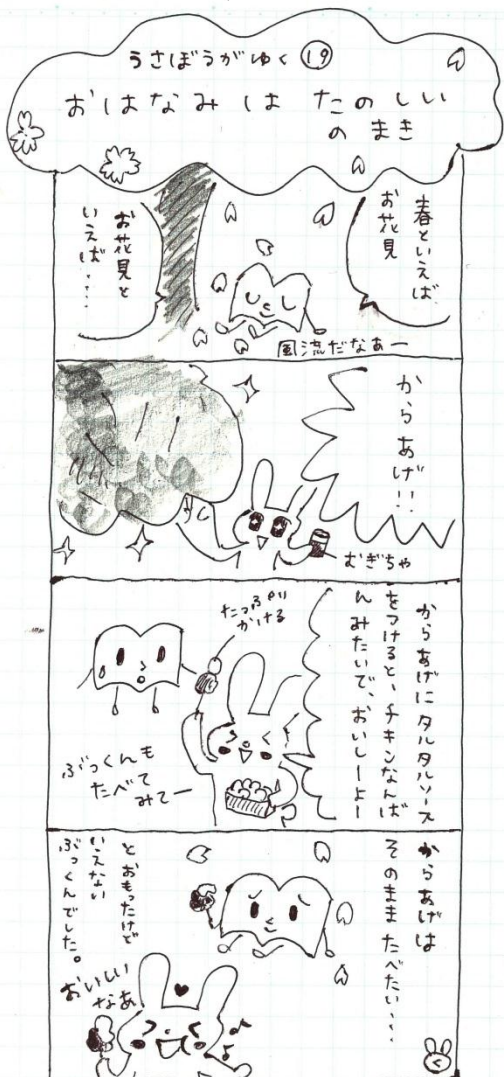 うさぼうがゆく⑲
おはなみは たのしい
のまき
春といえば
お花見
お花見と
いえば・・・・
風流だなあー
からあげ!!
むぎちゃ
からあげにタルタルソース
をつけると、チキンなんば
んみたいで、おいしーよー
たっぷり
かける
ぶっくんも
たべて
みてー
からあげは
そのまま たべたい・・・
とおもったけど
いえない
ぶっくんでした。
おいしい
なあ